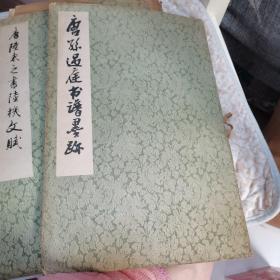 唐孙过庭书谱墨跡
唐陸柬之書陸機文賦